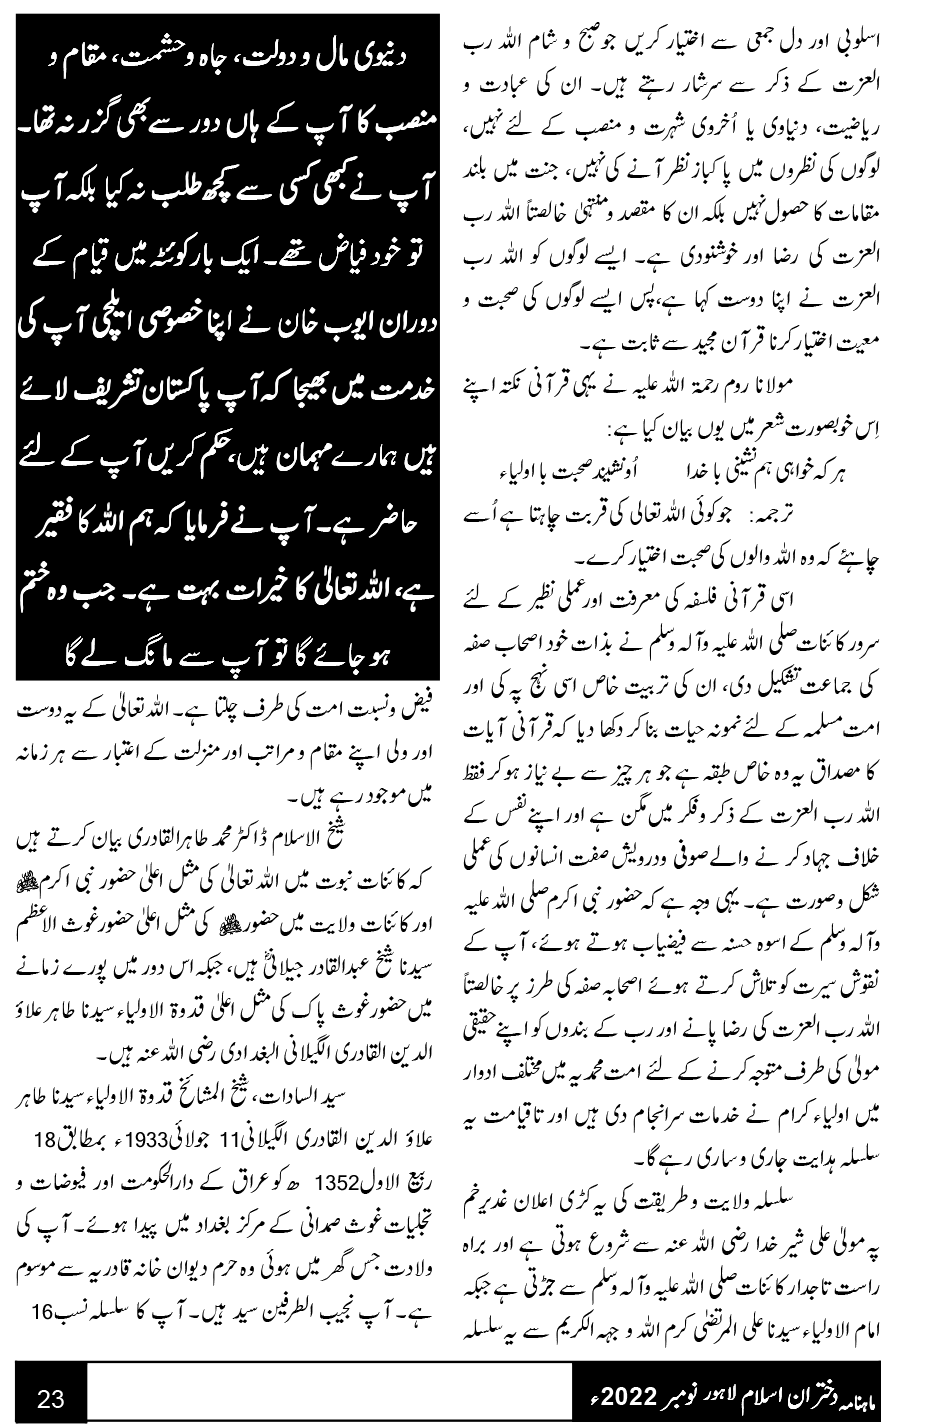 اسلوبی اور دل جمعی سے اختیار کریں جو صبح و شام اللہ رب
العزت کے ذکر سے سرشار رہتے ہیں۔ ان کی عبادت و
ریاضیت، دنیاوی یا اُخروی شہرت و منصب کے لئے نہیں،
لوگوں کی نظروں میں پاکباز نظر آنے کی نہیں، جنت میں بلند
مقامات کا حصول نہیں بلکہ ان کا مقصد و منتہیٰ خالصتاً اللہ رب
العزت کی رضا اور خوشنودی ہے۔ ایسے لوگوں کو اللہ رب
العزت نے اپنا دوست کہا ہے، پس ایسے لوگوں کی صحبت و
معیت اختیار کرنا قرآن مجید سے ثابت ہے۔
مولانا روم رحمۃ اللہ علیہ نے یہی قرآنی نکتہ اپنے
اِس خوبصورت شعر میں یوں بیان کیا ہے:
ہر کہ خواہی ہم نشینی با خدا اُو نشیند صحبت با اولیاء
ترجمہ: جو کوئی اللہ تعالی کی قربت چاہتا ہے اُسے
چاہئے کہ وہ اللہ والوں کی صحبت اختیار کرے۔
اسی قرآنی فلسفہ کی معرفت اور عملی نظیر کے لئے
سرور کائنات صلی اللہ علیہ وآلہ وسلم نے بذات خود اصحاب صفہ
کی جماعت تشکیل دی، ان کی تربیت خاص اسی نہج پہ کی اور
امت مسلمہ کے لئے نمونہ حیات بنا کر دکھا دیا کہ قرآنی آیات
کا مصداق یہ وہ خاص طبقہ ہے جو ہر چیز سے بے نیاز ہوکر فقط
اللہ رب العزت کے ذکر وفکر میں مگن ہے اور اپنے نفس کے
خلاف جہاد کرنے والے صوفی ودرویش صفت انسانوں کی عملی
شکل وصورت ہے۔ یہی وجہ ہے کہ حضور نبی اکرم صلی اللہ علیہ
وآلہ وسلم کے اسوہ حسنہ سے فیضیاب ہوتے ہوئے، آپ کے
نقوش سیرت کو تلاش کرتے ہوئے اصحابہ صفہ کی طرز پر خالصتاً
اللہ رب العزت کی رضا پانے اور رب کے بندوں کو اپنے حقیقی
مولیٰ کی طرف متوجہ کرنے کے لئے امت محمدیہ میں مختلف ادوار
میں اولیاء کرام نے خدمات سرانجام دی ہیں اور تاقیامت یہ
سلسلہ ہدایت جاری و ساری رہے گا۔
سلسلہ ولایت و طریقت کی یہ کڑی اعلان غدیرِ خم
پہ مولیٰ علی شیر خدا رضی اللہ عنہ سے شروع ہوتی ہے اور براہ
راست تاجدار کائنات صلی اللہ علیہ وآلہ وسلم سے جڑتی ہے جبکہ
امام الاولیاء سیدنا علی المرتضیٰ کرم اللہ و جہہ الکریم سے یہ سلسلہ
دنیوی مال و دولت، جاہ و حشمت، مقام و
منصب کا آپ کے ہاں دور سے بھی گزر نہ تھا۔
آپ نے کبھی کسی سے کچھ طلب نہ کیا بلکہ آپ
تو خود فیاض تھے۔ ایک بار کوئٹہ میں قیام کے
دوران ایوب خان نے اپنا خصوصی ایلچی آپ کی
خدمت میں بھیجا کہ آپ پاکستان تشریف لائے
ہیں ہمارے مہمان ہیں، حکم کریں آپ کے لئے
حاضر ہے۔ آپ نے فرمایا کہ ہم اللہ کا فقیر
ہے، اللہ تعالیٰ کا خیرات بہت ہے۔ جب وہ ختم
ہو جائے گا تو آپ سے مانگ لے گا
فیض ونسبت امت کی طرف چلتا ہے۔ اللہ تعالیٰ کے یہ دوست
اور ولی اپنے مقام و مراتب اور منزلت کے اعتبار سے ہر زمانہ
میں موجود رہے ہیں۔
شیخ الاسلام ڈاکٹر محمد طاہر القادری بیان کرتے ہیں
کہ کائنات نبوت میں اللہ تعالیٰ کی مثل اعلیٰ حضور نبی اکرم ﷺ
اور کائنات ولایت میں حضور ﷺ کی مثل اعلیٰ حضور غوث الاعظم
سیدنا شیخ عبدالقادر جیلانیؓ ہیں، جبکہ اس دور میں پورے زمانے
میں حضور غوث پاک کی مثل اعلیٰ قدوۃ الاولیاء سیدنا طاہر علاؤ
الدین القادری الگیلانی البغدادی رضی اللہ عنہ ہیں۔
سید السادات، شیخ المشائخ قدوۃ الاولیاء سیدنا طاہر
علاؤ الدین القادری الگیلانی 11 جولائی 1933ء بمطابق 18
ربیع الاول 1352 ھ کو عراق کے دارالحکومت اور فیوضات و
تجلیات غوث صمدانی کے مرکز بغداد میں پیدا ہوئے۔ آپ کی
ولادت جس گھر میں ہوئی وہ حرم دیوان خانہ قادریہ سے موسوم
ہے۔ آپ نجیب الطرفین سید ہیں۔ آپ کا سلسلہ نسب 16
ماہنامہ دختران اسلام لاہور نومبر 2022ء
23